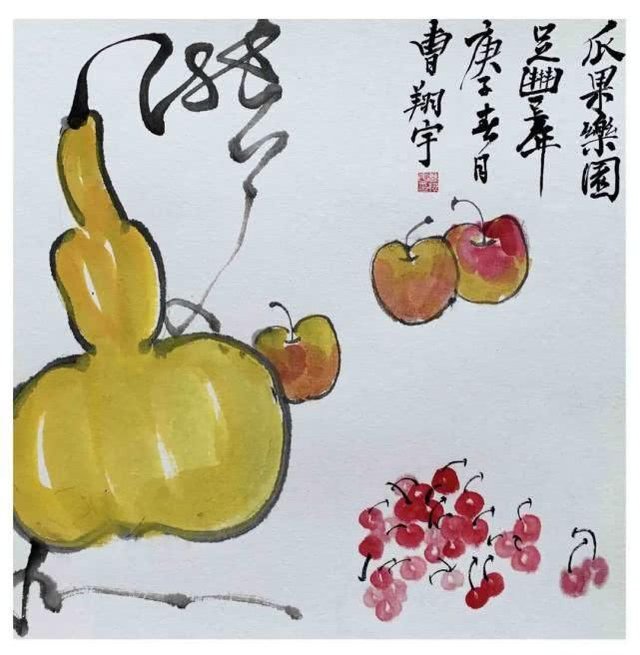 瓜果樂園
足豐年
庚子春月
曹翔宇